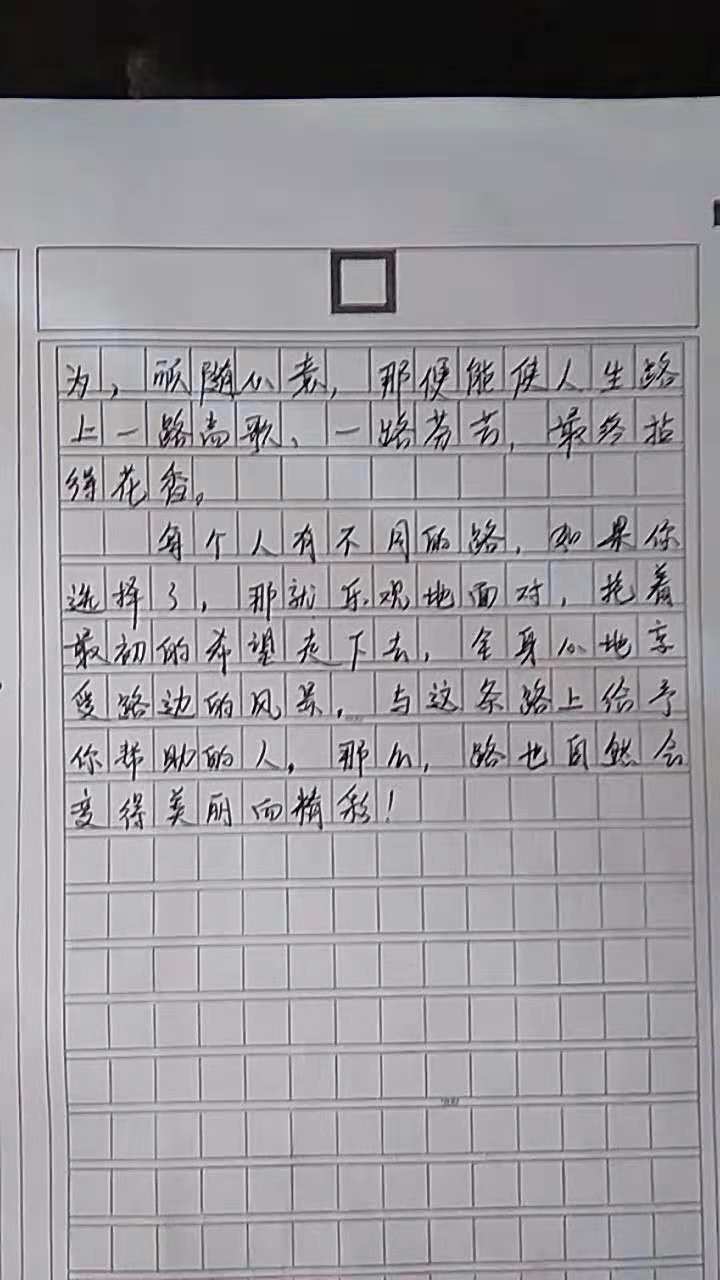 为，顺随心意，那便能使人生路
上一路高歌、一路芬芳，最终拈
得花香。
每个人有不同的路，如果你
选择了，那就乐观地面对，抱着
最初的希望走下去，全身心地享
受路边的风景，与这条路上给予
你帮助的人。那么，路也自然会
变得美丽而精彩！